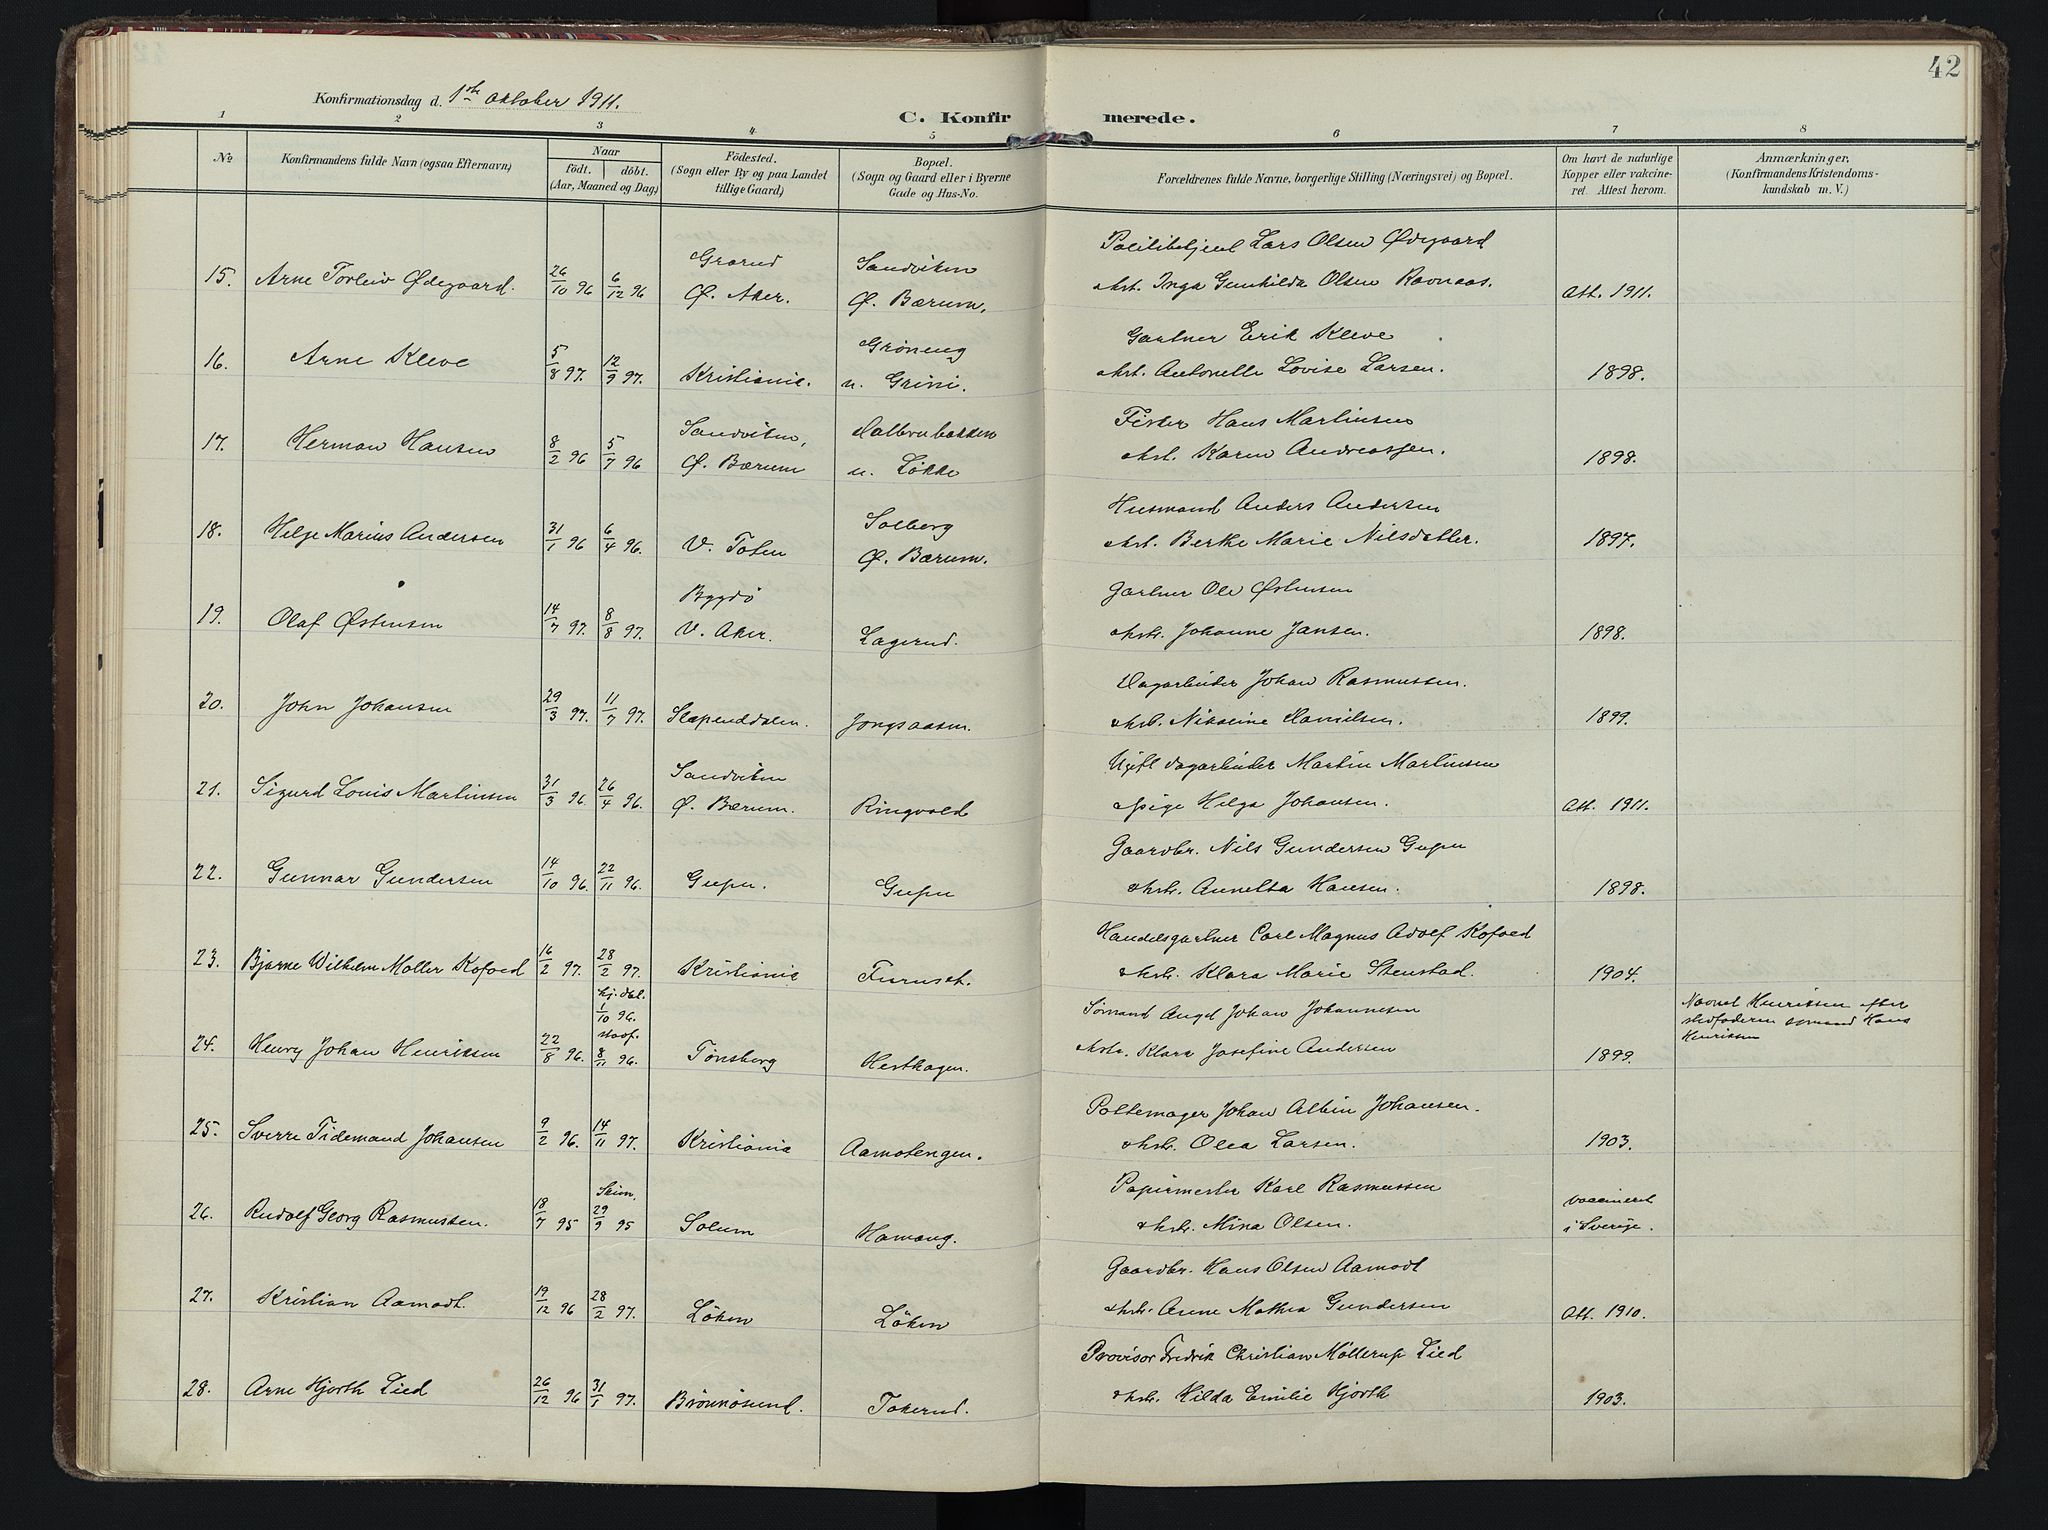 42
Konfirmationsdag d. 1ste oktober 1911.
C. Konfirmerede.
1 2 3 4 5 6 7 8
No
Konfirmandens fulde Navn (ogsaa Efternavn)
Naar
födt. döbt.
(Aar, Maaned og Dag)
Födested.
(Sogn eller By og paa Landet
tillige Gaard)
Bopæl.
(Sogn og Gaard eller i Byerne
Gade og Hus-No.
Forældrenes fulde Navne, borgerlige Stilling (Næringsvei) og Bopæl.
Om havt de naturlige
Kopper eller vakcine-
ret. Attest herom.
Anmærkninger,
(Konfirmandens Kristendoms-
kundskab m. V.)
15. Arne Torleiv Ødegaard. 26/10 96 6/12 96 Grorud Ø. Aker. Sandviken Ø. Bærum. Politibetjent Lars Olsen Ødegaard
& hst. Inga Gunhilda Olsen Ravnaas. Att. 1911.
16. Arne Kleve 5/8 97. 12/9 97. Kristiania. Grøneng u. Grini. Gartner Erik Kleve
& hst. Antonette Lovise Larsen. 1898.
17. Herman Hansen 8/2 96 5/7 96 Sandviken, Ø. Bærum u. Løkke Fisker Hans Martinsen
& hst. Karen Andreassen. 1898.
18. Helge Marius Andersen 31/1 96 6/4 96. V. Toten Solberg Ø. Bærum. Husmand Anders Andersen
& hst. Berthe Marie Nilsdatter. 1897.
19. Olaf Østensen 14/7 97. 8/8 97. Bygdø V. Aker. Lagerud. Gartner Ole Østensen
& hst. Johanne Jansen. 1898.
20. John Johansen 29/3 97. 11/7 97. Slependdalen. Jongsaasen. Dagarbeider Johan Rasmussen.
& hst. Nikoline Danielsen. 1899.
21. Sigurd Louis Martinsen 31/3 96. 26/4 96. Sandviken Ø. Bærum. Ringvold Ugift dagarbeider Martin Martinsen
& pige Helga Johansen. Att. 1911.
22. Gunnar Gundersen 14/10 96. 22/11 96. Gupu. Gupu Gaardbr. Nils Gundersen Gupu
& hst. Annetta Hansen. 1898.
23. Bjarne Wilhelm Møller Kofoed 16/2 97. 28/2 97. Kristiania Furuset. Handelsgartner Carl Magnus Adolf Kofoed
& hst. Klara Marie Stenstad. 1904.
24. Henry Johan Henriksen 22/8 96. hj. døbt. 1/10 96. stadf. 8/11 96. Tønsberg Hesthagen. Sømand Johan Johannesen
& hst. Klara Josefine Andersen 1899. Navnet Henriksen efter
stedfaderen sømand Hans
Henriksen
25. Sverre Tidemand Johansen 9/2 96. 14/11 97. Kristiania Aamotengen. Pottemager Johan Albin Johansen.
& hst. Olea Larsen. 1903.
26. Rudolf Georg Rasmussen. 18/7 95 29/9 95 Solum Hamang. Papirmester Karl Rasmussen
& hst. Mina Olsen. vaccineret
i Sverige.
27. Kristian Aamodt. 19/12 96 28/2 97. Løken Løken Gaardbr. Hans Olsen Aamodt
& hst. Anne Mathea Gundersen Att. 1910.
28. Arne Hjorth Lied 26/12 96 31/1 97. Brønnøsund. Tokerud. Provisor Fredrik Christian Møllerup Lied
& hst. Hilda Emilie Hjorth 1903.